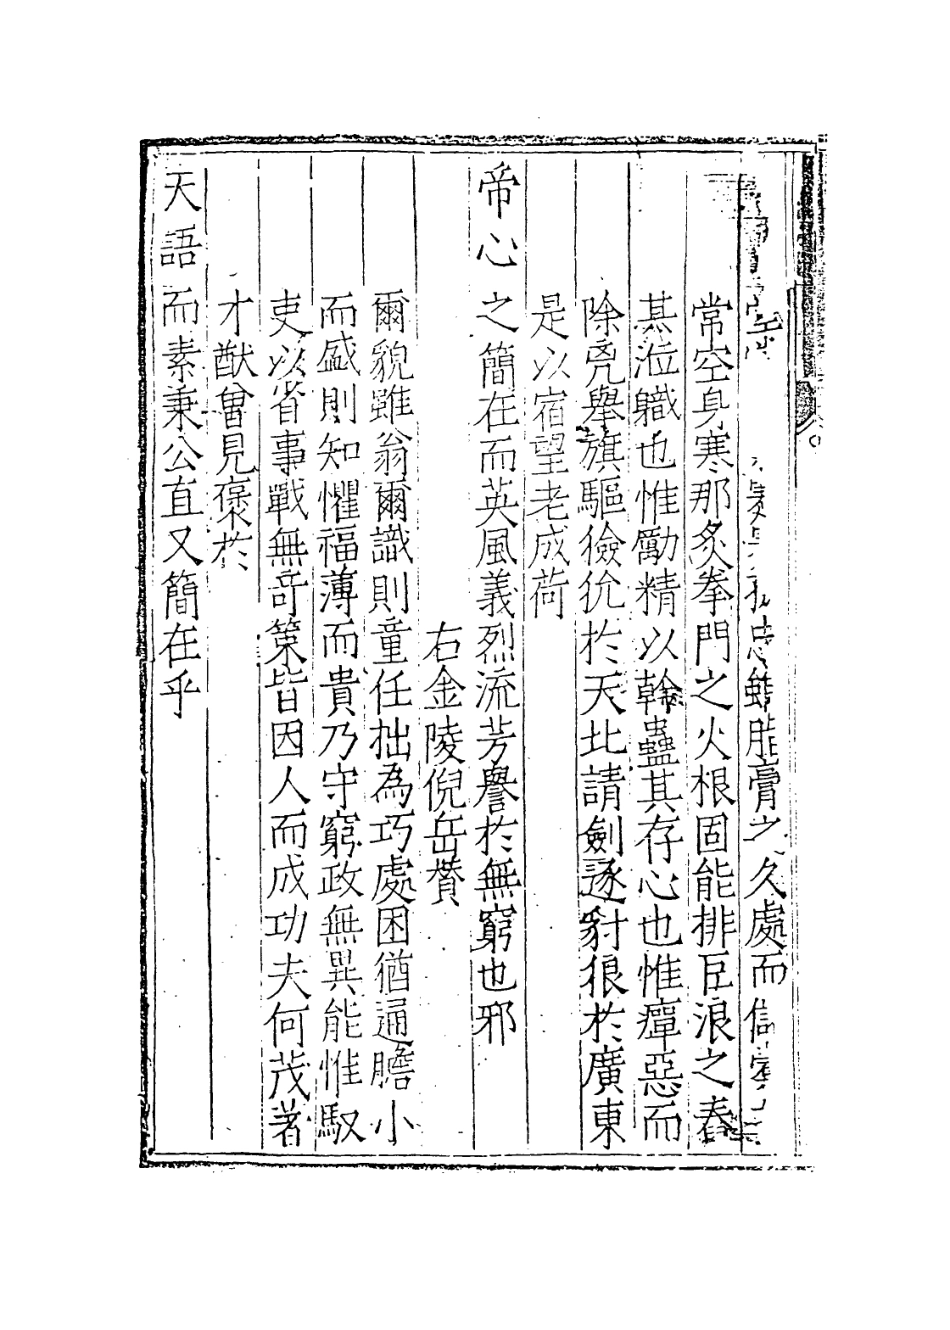 忠鯁脂膏之久處而儔寮
常空身寒那炙拳門之火根固能排巨浪之舂
其涖職也惟勵精以幹蠱其存心也惟癉惡而
除兇舉旗驅獫狁於天北請劍逐豺狼於廣東
是以宿望老成荷
帝心之簡在而英風義烈流芳譽於無窮也邪
右金陵倪岳贊
爾貌雖翁爾識則童任拙為巧處困猶通膽小
而盛則知懼福薄而貴乃守窮政無異能惟馭
吏以省事戰無奇策皆因人而成功夫何茂著
才猷曾見褒於
天語而素秉公直又簡在乎